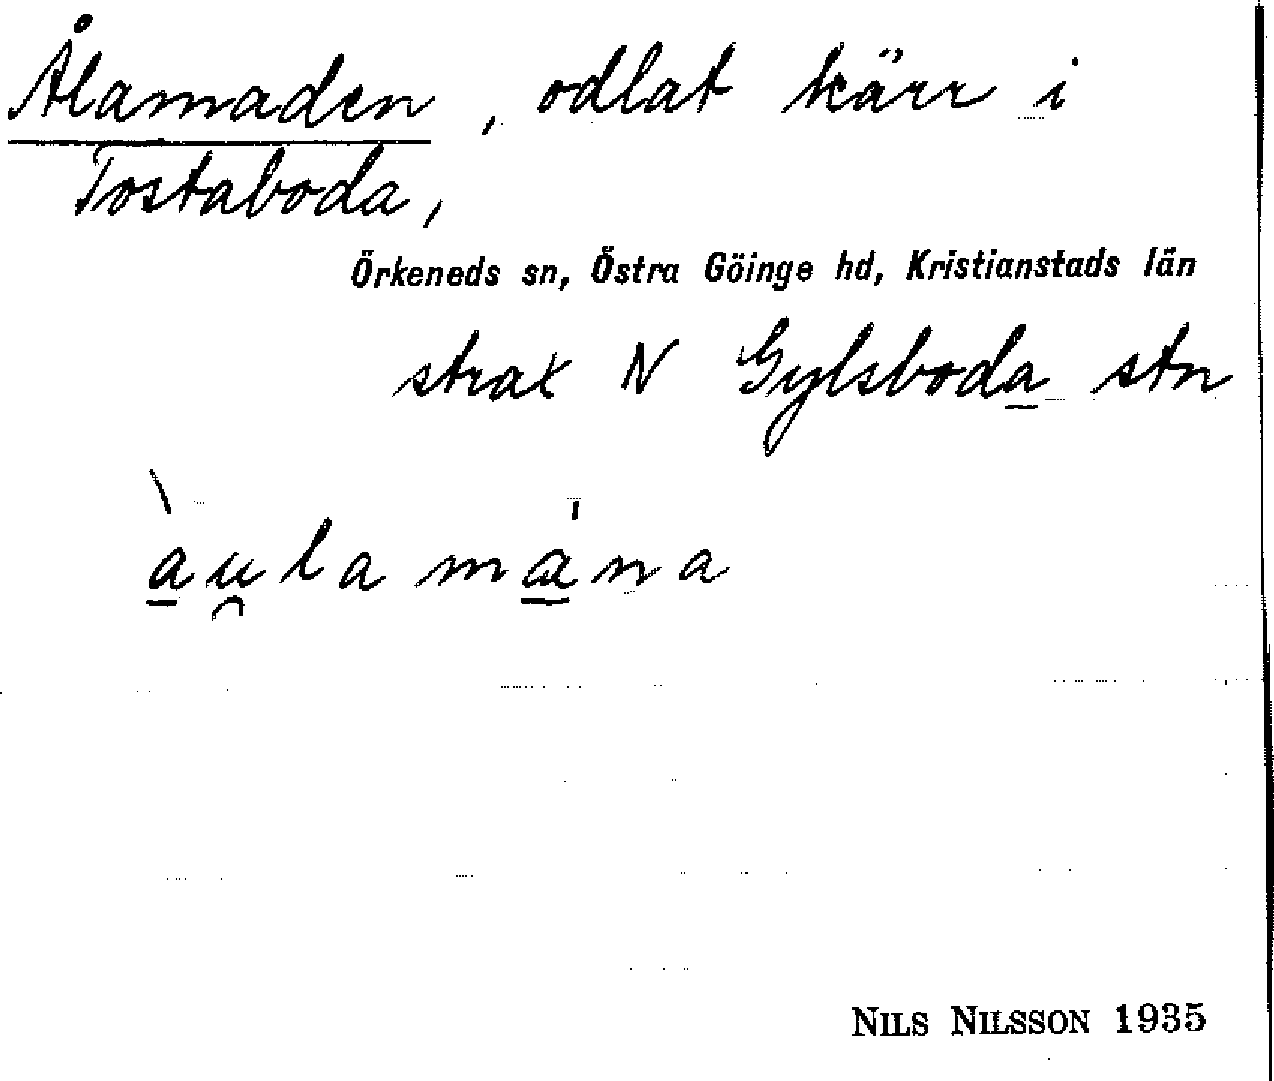 Ålamaden, odlat kärr i
Tostaboda,
Örkeneds sn, Östra Göinge hd, Kristianstads län
strax N Gylsboda stn
a̱u̯lama̱na
NILS NILSSON 1935